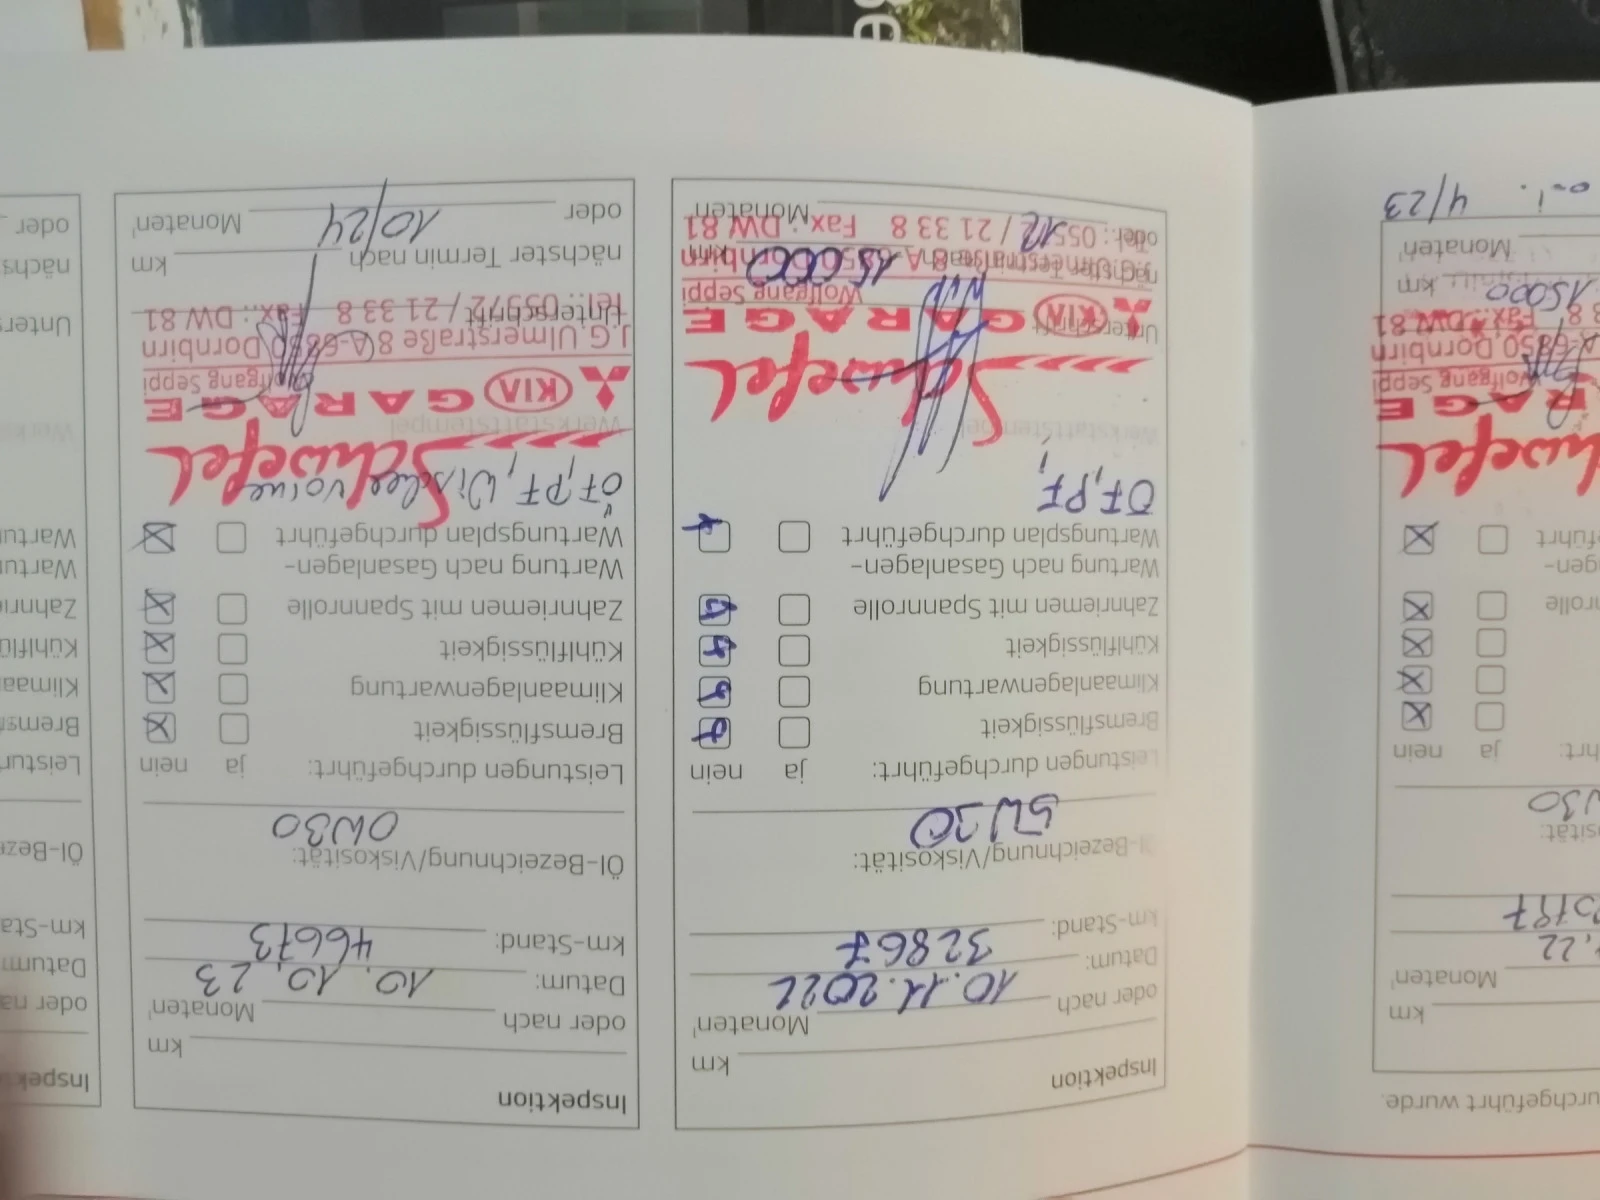 Inspektion
km
oder nach Monaten¹
Datum: 10.11.2022
km-Stand: 32867
Öl-Bezeichnung/Viskosität:
5W30
Leistungen durchgeführt: ja nein
Bremsflüssigkeit
Klimaanlagenwartung
Kühlflüssigkeit
Zahnriemen mit Spannrolle
Wartung nach Gasanlagen-
Wartungsplan durchgeführt
ÖF, PF,
Werkstattstempel
Schwefel
Unterschrift
KIA GARAGE
Wolfgang Seppi
nächster Termin nach 15000 km
J.G. Ulmerstraße 8 A-6850 Dornbirn
oder 12 Monaten¹
Tel.: 05572 / 21 33 8 Fax.: DW 81
Inspektion
km
oder nach Monaten¹
Datum: 10.10.23
km-Stand: 46673
Öl-Bezeichnung/Viskosität:
0W30
Leistungen durchgeführt: ja nein
Bremsflüssigkeit
Klimaanlagenwartung
Kühlflüssigkeit
Zahnriemen mit Spannrolle
Wartung nach Gasanlagen-
Wartungsplan durchgeführt
ÖF, PF, Wischer vorne
Schwefel
Werkstattstempel
KIA GARAGE
Wolfgang Seppi
J.G. Ulmerstraße 8 A-6850 Dornbirn
Unterschrift
Tel.: 05572 / 21 33 8 Fax.: DW 81
nächster Termin nach km
oder 10/24 Monaten¹
Inspektion
oder na
Datum
km-Sta
Öl-Beze
Leistun
Bremsf
Klimaa
Kühlflü
Zahnrie
Wartun
Wartun
Unters
nächs
oder
urchgeführt wurde.
km
Monaten¹
W30
ja nein
15000 km
A-6850 Dornbirn
Wolfgang Seppi
Monaten¹
4/23